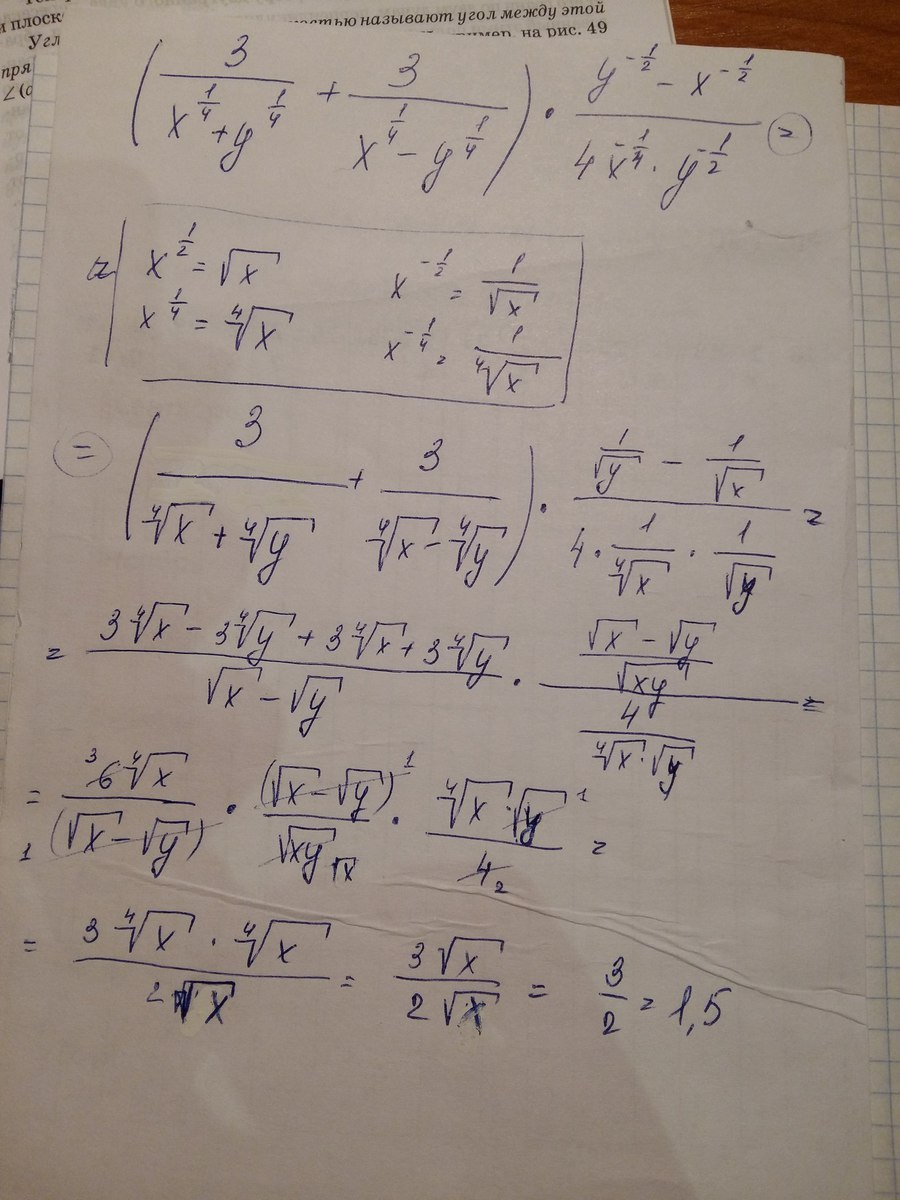 и плоск
костью называют угол между этой
Угл
пример, на рис. 49
пря
∠(
( 3/(x^(1/4) + y^(1/4)) + 3/(x^(1/4) − y^(1/4)) ) · (y^(−1/2) − x^(−1/2))/(4x^(−1/4) · y^(−1/2)) =
x^(1/2) = √x x^(−1/2) = 1/√x
x^(1/4) = ∜x x^(−1/4) = 1/∜x
= ( 3/(∜x + ∜y) + 3/(∜x − ∜y) ) · (1/√y − 1/√x)/(4 · 1/∜x · 1/√y) =
= (3∜x − 3∜y + 3∜x + 3∜y)/(√x − √y) · ((√x − √y)/√xy)/(4/(∜x · √y)) =
= 6∜x/(√x − √y) · (√x − √y)/√xy · (∜x · √y)/4 =
= (3∜x · ∜x)/(2√x) = 3√x/(2√x) = 3/2 = 1,5